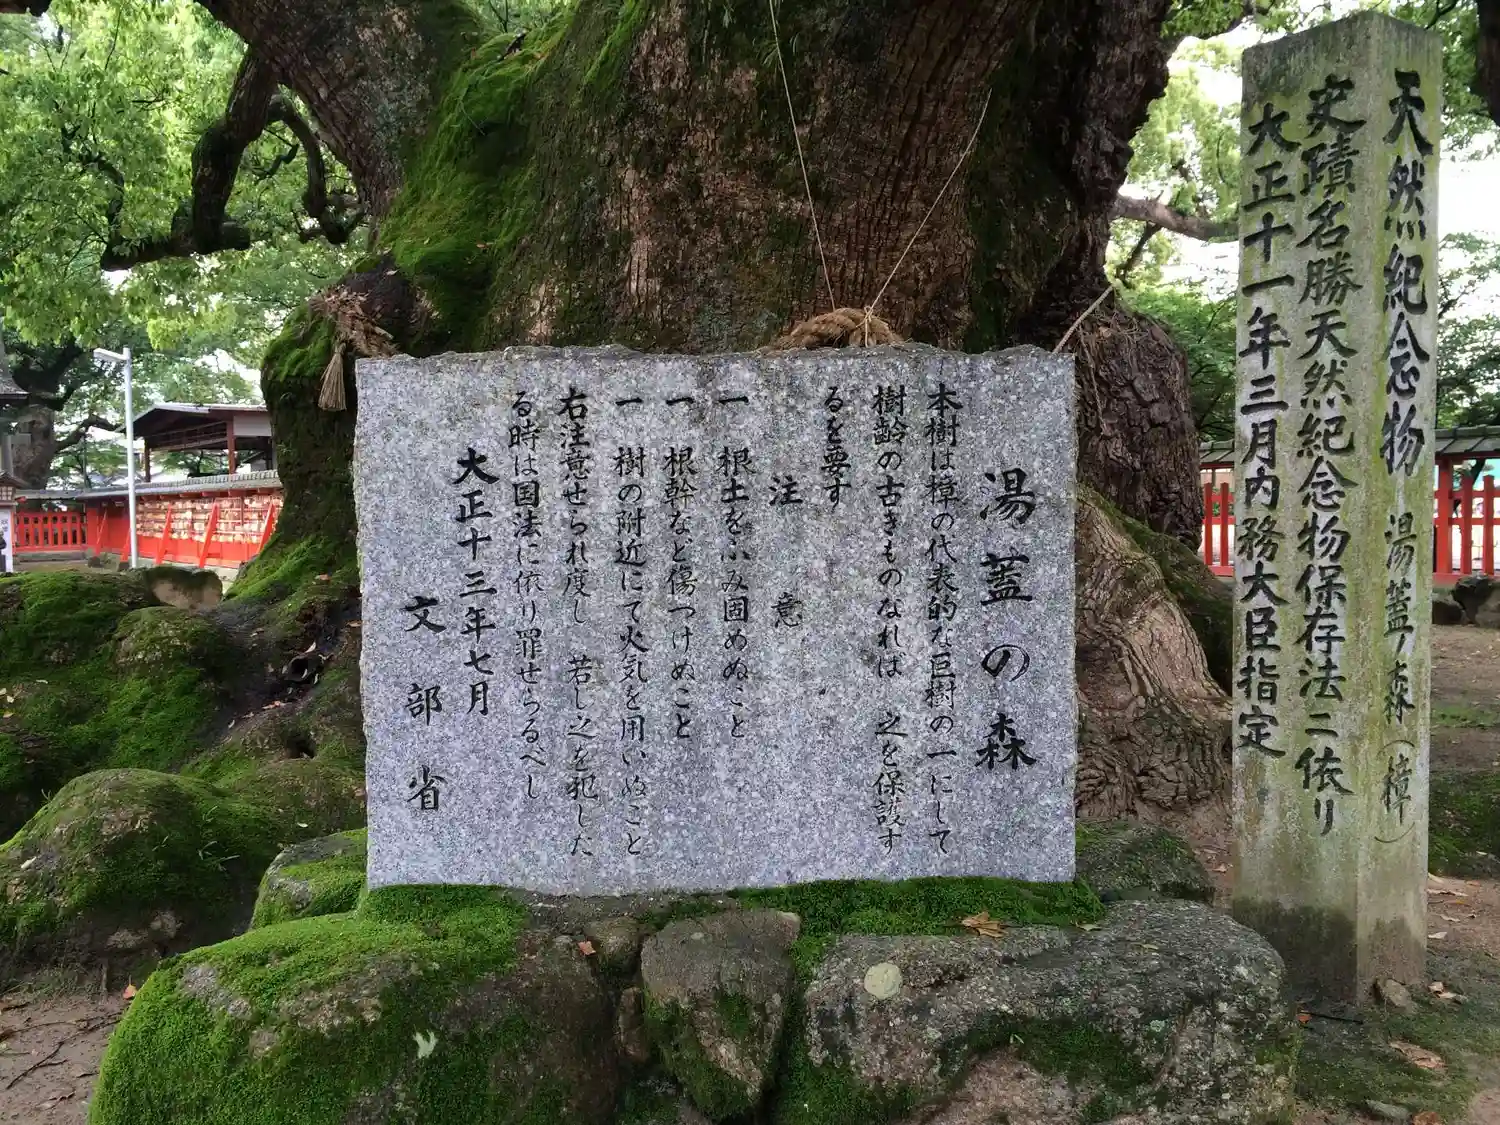 天然紀念物 湯蓋ノ森(樟)
史蹟名勝天然紀念物保存法ニ依リ
大正十一年三月内務大臣指定
湯蓋の森
本樹は樟の代表的な巨樹の一にして
樹齢の古きものなれは 之を保護す
るを要す
注意
一 根土をふみ固めぬこと
一 根幹など傷つけぬこと
一 樹の附近にて火気を用いぬこと
右注意せられ度し 若し之を犯した
る時は国法に依り罪せらるべし
大正十三年七月
文部省